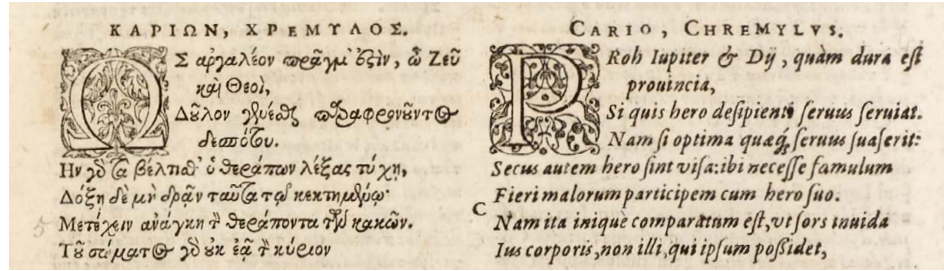 ΚΑΡΙΩΝ, ΧΡΕΜΥΛΟΣ.
ΩΣ ἀργαλέον πρᾶγμ' ἐστὶν, ὦ Ζεῦ
καὶ Θεοὶ,
Δοῦλον γενέσθαι παραφρονοῦντος
δεσπότου.
Ην γὰρ τὰ βέλτισθ' ὁ θεράπων λέξας τύχῃ,
Δόξῃ δὲ μὴ δρᾶν ταῦτα τῷ κεκτημένῳ·
Μετέχειν ἀνάγκη τὸν θεράποντα τῶν κακῶν.
5
Τοῦ σώματος γὰρ οὐκ ἐᾷ τὸν κύριον
CARIO, CHREMYLVS.
PRoh Iupiter & Dij, quàm dura est
prouincia,
Si quis hero desipienti seruus seruiat.
Nam si optima quæq; seruus suaserit:
Secus autem hero sint visa: ibi necesse famulum
Fieri malorum participem cum hero suo.
C
Nam ita iniquè comparatum est, vt sors inuida
Ius corporis, non illi, qui ipsum possidet,